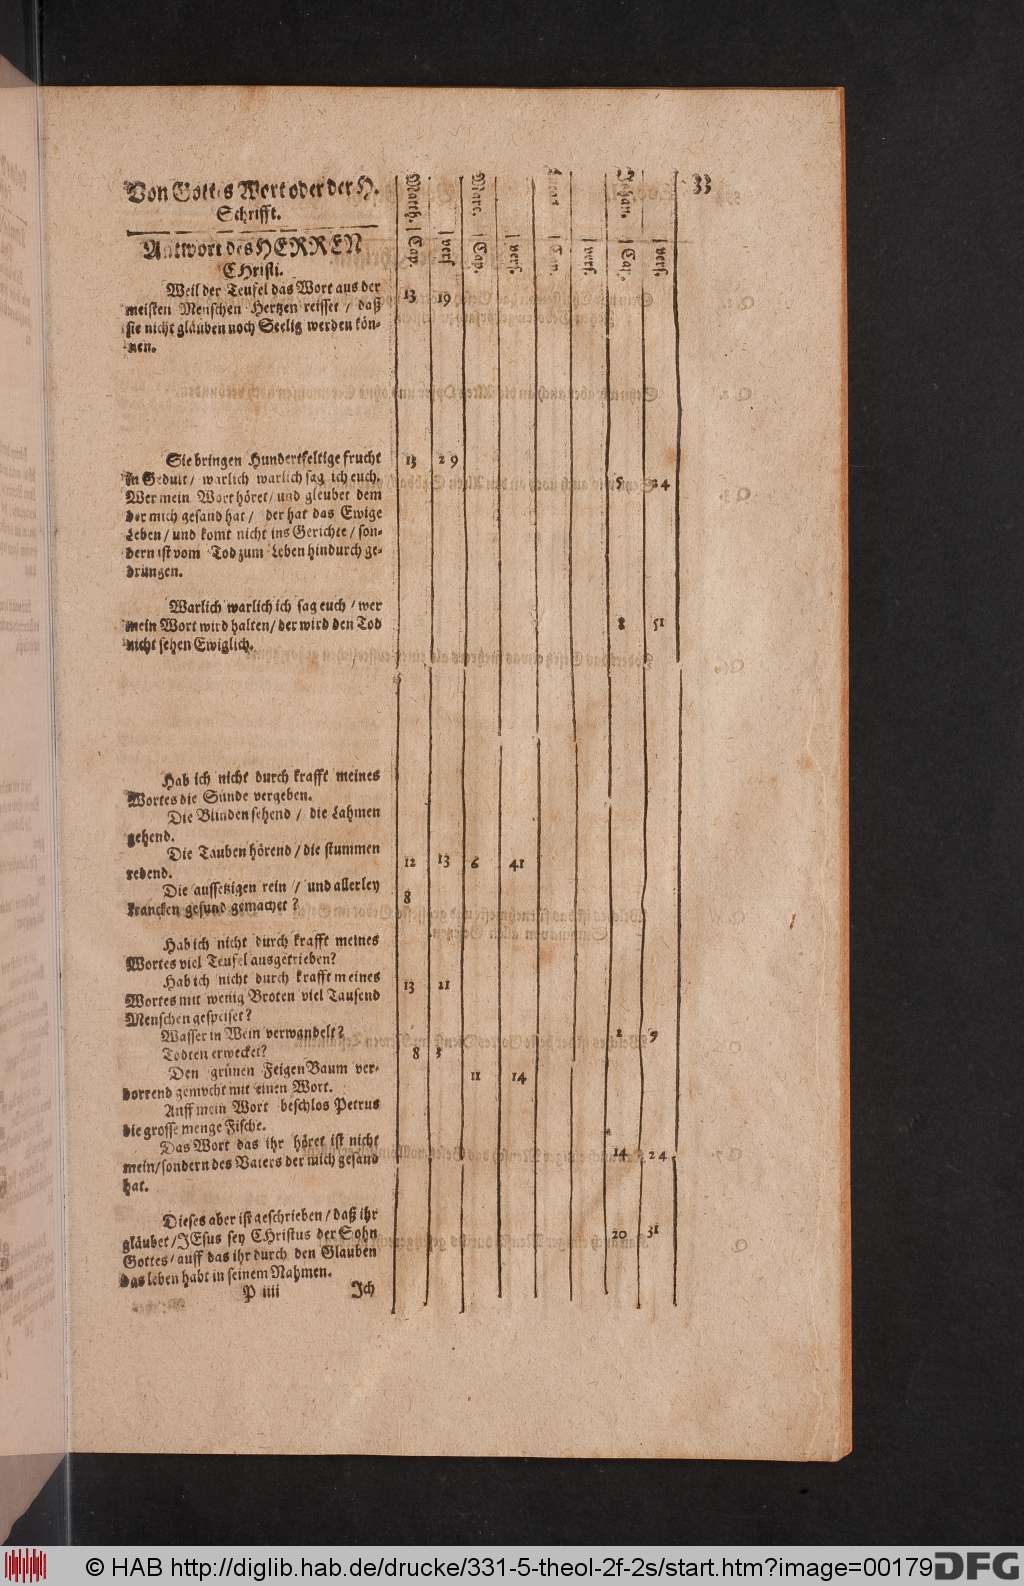 33
Von Gottes Wort oder der H.
Schrifft.
Antwort des HERREN
CHristi.
Matth. Marc. Johan.
Cap. vers Cap. vers. Cap. vers. Cap. vers.
Weil der Teufel das Wort aus der 13 19
meisten Menschen Hertzen reisset / daß
sie nicht gläuben noch Seelig werden kön-
nen.
Sie bringen Hundertfeltige frucht 13 29
in Gedult / warlich warlich sag ich euch. 5 24
Wer mein Wort höret / und gleubet dem
der mich gesand hat / der hat das Ewige
Leben / und komt nicht ins Gerichte / son-
dern ist vom Tod zum Leben hindurch ge-
drungen.
Warlich warlich ich sag euch / wer
mein Wort wird halten / der wird den Tod 8 51
nicht sehen Ewiglich.
Hab ich nicht durch krafft meines
Wortes die Sünde vergeben.
Die Blinden sehend / die Lahmen
gehend.
Die Tauben hörend / die stummen 12 13 6 41
redend.
Die aussetzigen rein / und allerley 8
krancken gesund gemachet ?
Hab ich nicht durch krafft meines
Wortes viel Teufel ausgetrieben?
Hab ich nicht durch krafft meines 13 21
Wortes mit wenig Broten viel Tausend
Menschen gespeiset?
Wasser in Wein verwandelt? 2 9
Todten erwecket? 8 3
Den grünen Feigen Baum ver- 11 14
dorrend gemacht mit einen Wort.
Auff mein Wort beschlos Petrus
die grosse menge Fische.
Das Wort das ihr höret ist nicht 14 24
mein / sondern des Vaters der mich gesand
hat.
Dieses aber ist geschrieben / daß ihr
gläubet / JEsus sey CHristus der Sohn 20 31
Gottes / auff das ihr durch den Glauben
das leben habt in seinem Nahmen.
P iiii Jch
© HAB http://diglib.hab.de/drucke/331-5-theol-2f-2s/start.htm?image=00179
DFG